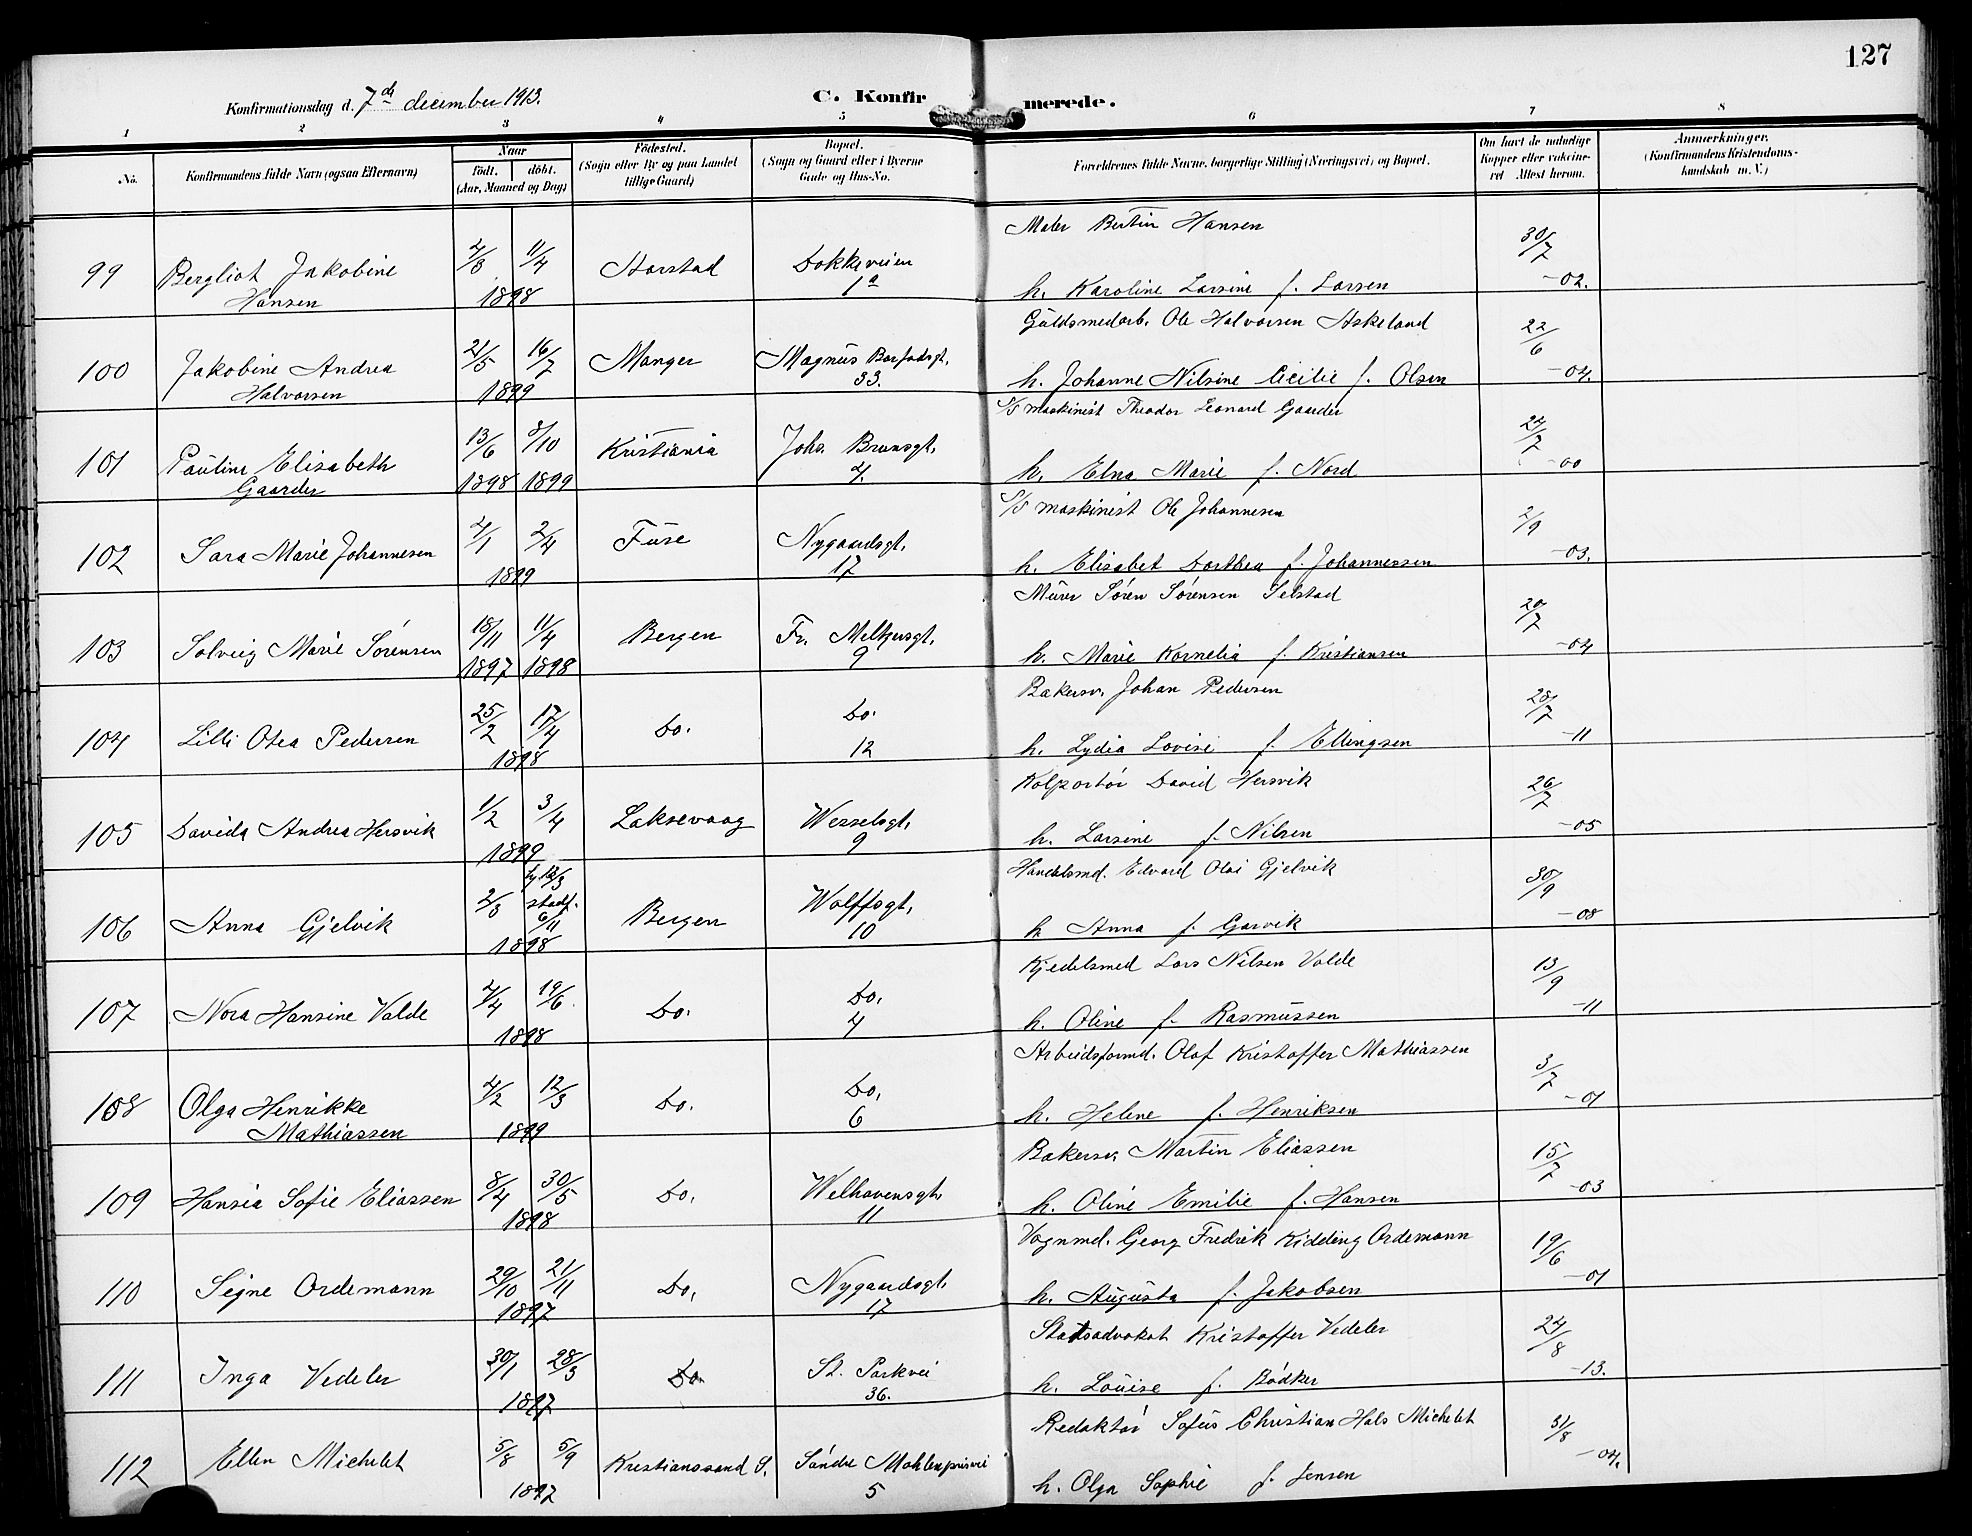 127
Konfirmationsdag d. 7de december 1913.
C. Konfirmerede.
1 2 3 4 5 6 7 8
No. Konfirmandens fulde Navn (ogsaa Efternavn) Naar født. døbt. (Aar, Maaned og Dag) Fødested. (Sogn eller By og paa Landet tillige Gaard) Bopæl. (Sogn og Gaard eller i Byerne Gade og Hus-No. Forældrenes fulde Navne, borgerlige Stilling (Næringsvei) og Bopæl. Om havt de naturlige Kopper eller vakcineret Attest herom. Anmærkninger. (Konfirmandens Kristendomskundskab m. V.)
Maler Bertin Hansen
99 Bergliot Jakobine 11/4 Dokkeveien 30/7
Hansen 1898 1a h. Karoline Larsine f. Larsen -02.
Guldsmedarb. Ole Halvorsen Askeland
100 Jakobine Andrea 21/5 16/7 Manger Magnus Barfodsgt. 22/6
Halvorsen 1899 33. h. Johanne Nilsine Cecilie f. Olsen -04.
S/S maskinist Theodor Leonard Gaarder
101 Pauline Elisabeth 13/6 8/10 Kristiania Johs. Brunsgt. 24/7
Gaarder 1898 1899 4. h. Elna Marie f. Nord -00
S/S maskinist Ole Johannesen
102 Sara Marie Johannesen 4/1 2/4 Fuse Nygaardsgt. 2/9
1899 17 h. Elisabet Dorthea f. Johannessen -03.
Murer Søren Sørensen Selstad
103 Solveig Marie Sørensen 18/11 11/4 Bergen Fr. Melkersgt. 20/7
1897 1898 9 h. Marie Kornelia f. Kristiansen -04
Bakersv. Johan Pedersen
104 Lilli Otea Pedersen 25/2 17/4 Do. Do. 28/7
1898 12 h. Lydia Lovise f. Ellingsen -11
Kolportør David Hersvik
105 Davida Andrea Hersvik 1/2 3/4 Laksevaag Wesselsgt. 26/7
1899 9 h. Larsine f. Nilsen -05
Handelsmd. Edvard Olai Gjelvik
106 Anna Gjelvik 2/3 stadf. 6/11 Bergen Wolffsgt. 30/9
1898 10 h. Anna f. Garvik -08
Kjedelsmed Lars Nilsen Valde
107 Nora Hansine Valde 4/4 19/6 Do. Do. 13/9
1898 4 h. Oline f. Rasmussen -11
Arbeidsformd. Olaf Kristoffer Mathiassen
108 Olga Henrikke 4/2 12/3 Do. Do. 3/7
Mathiassen 1899 6 h. Helene f. Henriksen -01
Bakersv. Martin Eliassen
109 Hansia Sofie Eliassen 8/4 30/5 Do. Welhavensgt. 15/7
1898 11 h. Oline Emilie f. Hansen -03
Vognmd. Georg Fredrik Kidding Ordemann
110 Signe Ordemann 29/10 21/11 Do. Nygaardsgt. 19/6
1897 17 h. Augusta f. Jakobsen -01
Statsadvokat Kristoffer Vedeler
111 Inga Vedeler 30/1 28/3 Do. St. Parkvei 24/8
1897 36. h. Louise f. Bødker -13.
Redaktør Sofus Christian Hals Michelet
112 Ellen Michelet 5/8 5/9 Kristianssand S. Søndre Møhlenprisvei 31/8
1897 5 h. Olga Sophie f. Jensen -04.